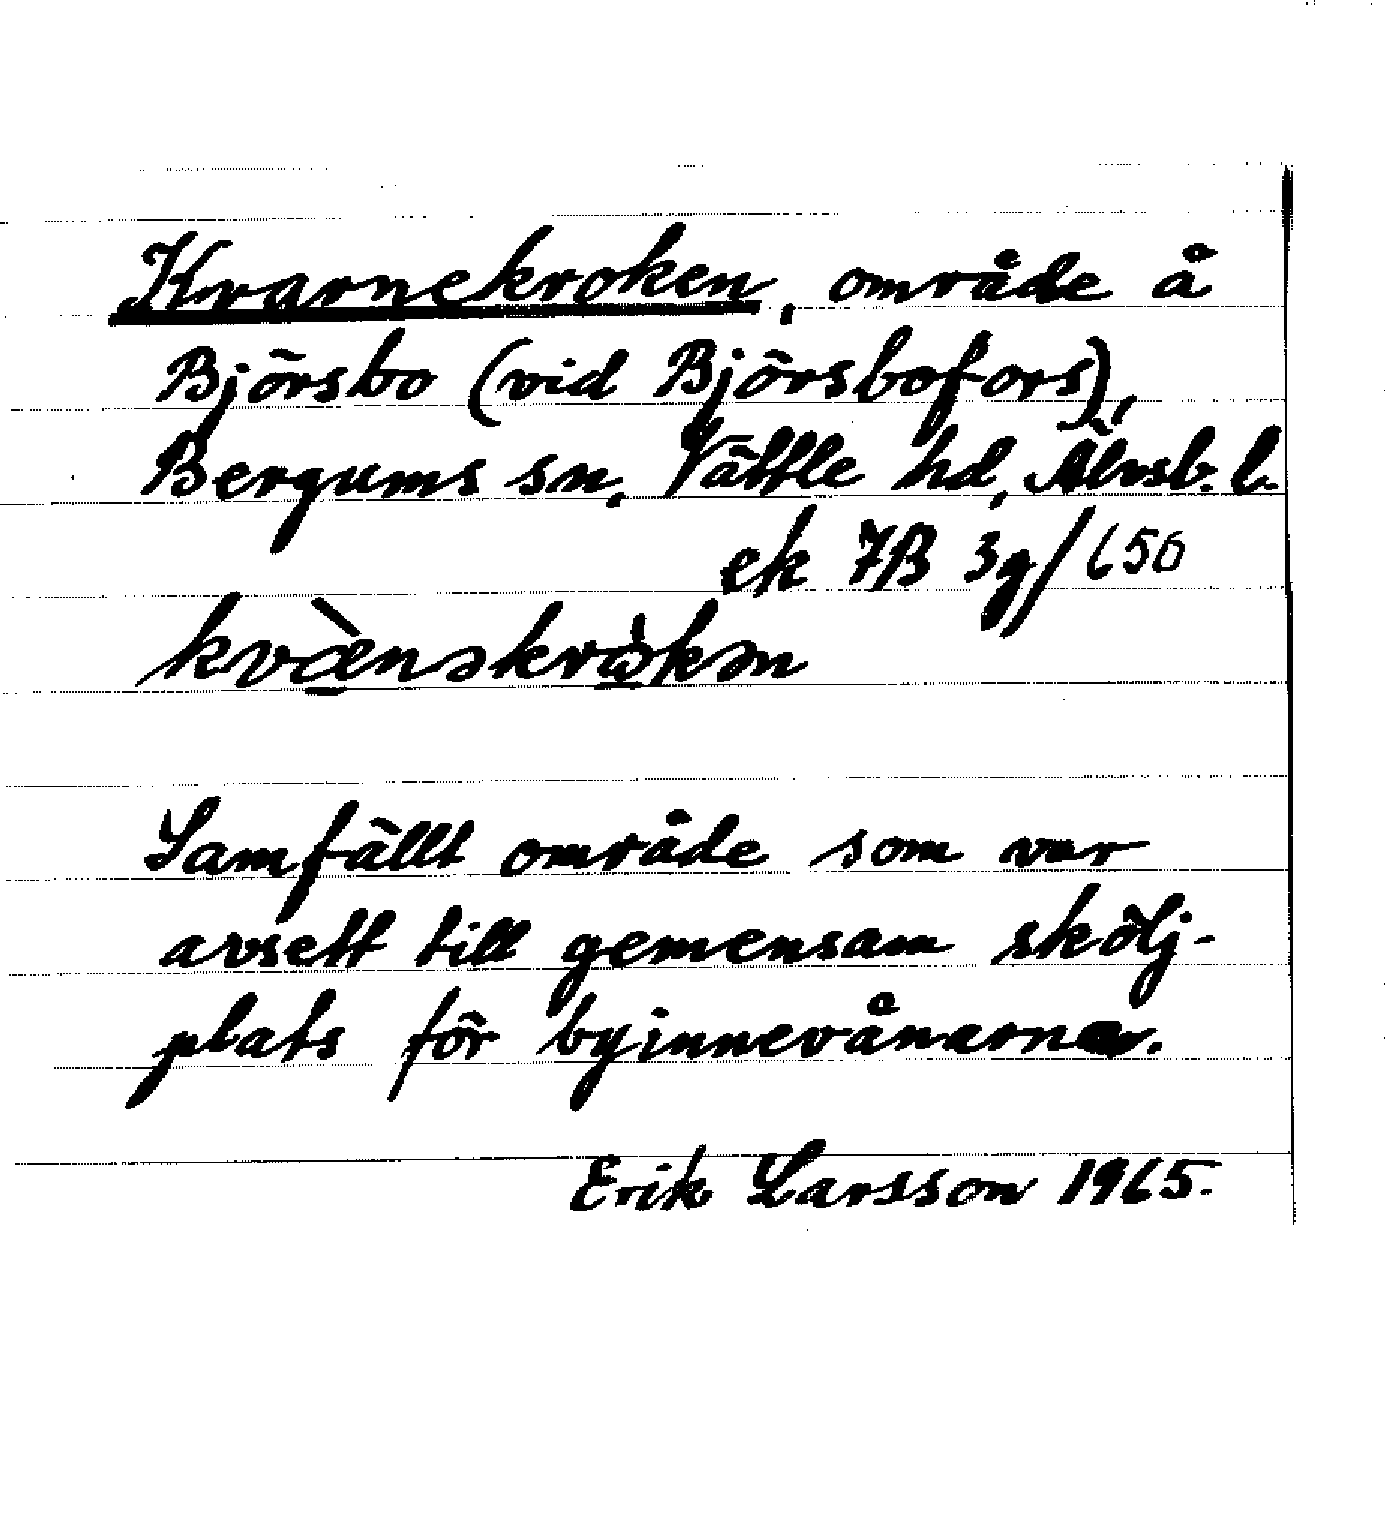 Kvarnekroken, område å
Björsbo (vid Björsbofors),
Bergums sn, Vättle hd, Älvsb. l.
ek 7B 3g/650
kvæ̀nəkrὼkən
Samfällt område som var
avsett till gemensam skölj-
plats för byinnevånarna.
Erik Larsson 1965.